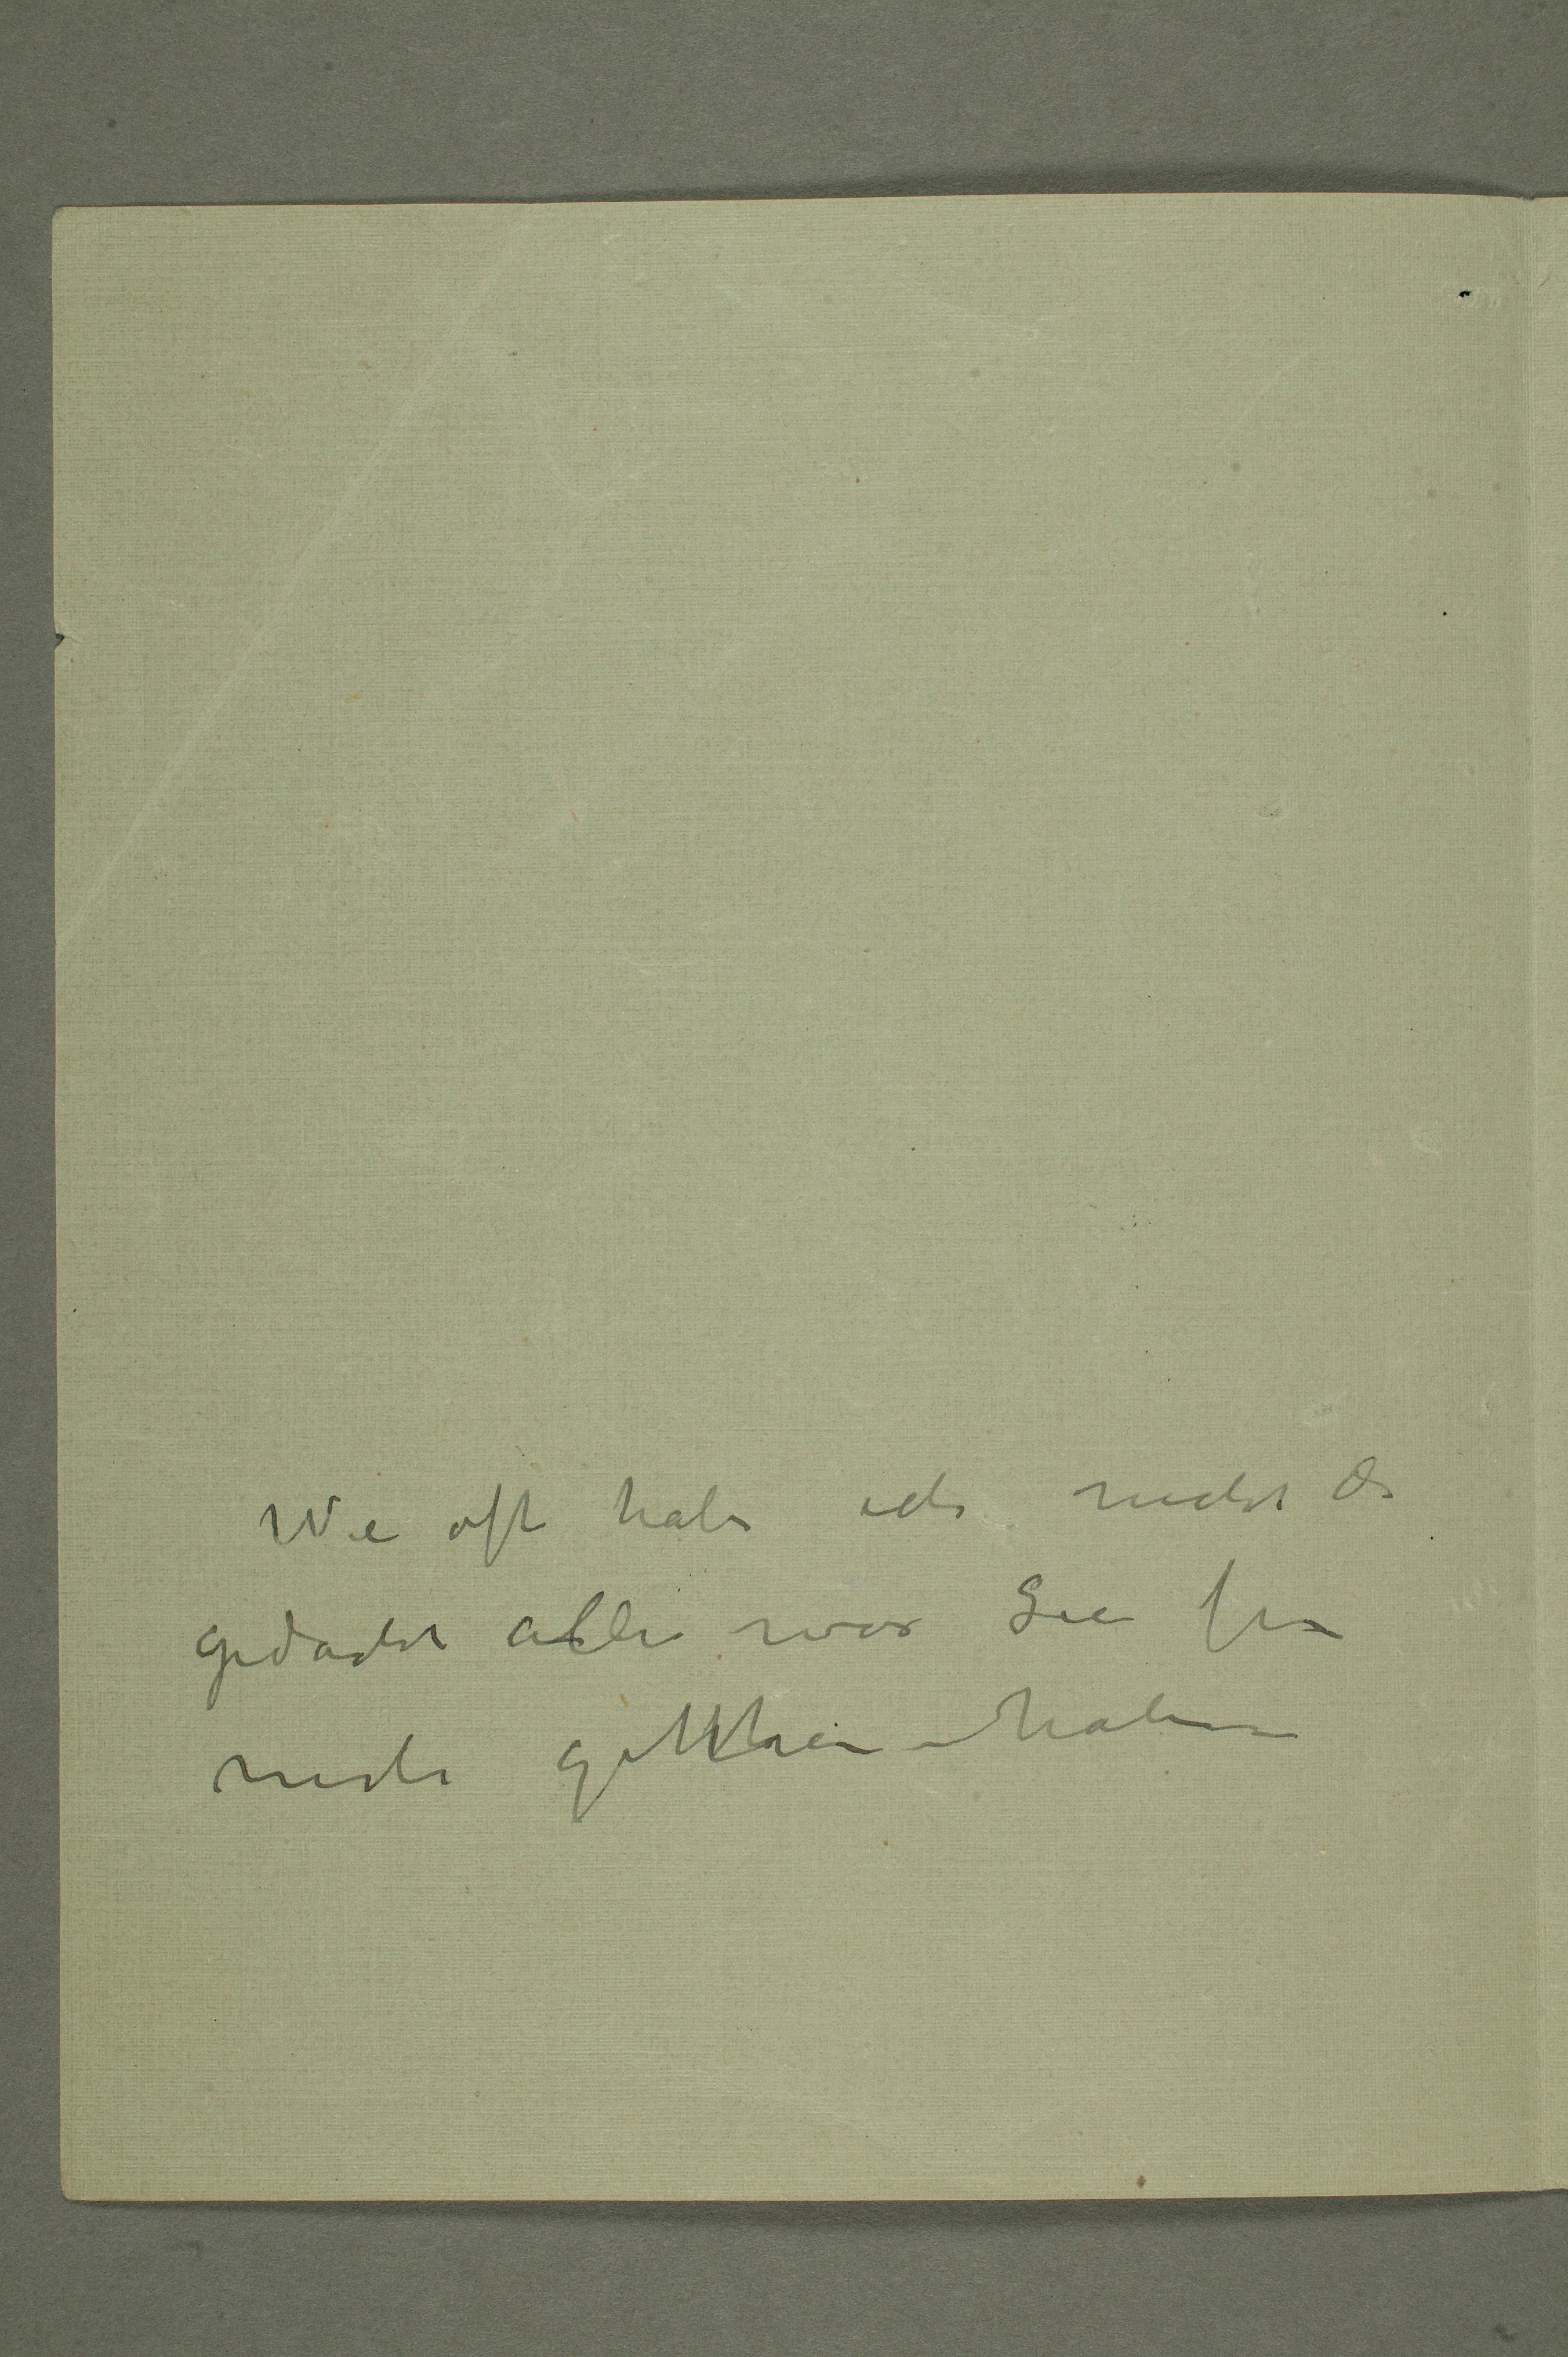 Wie oft habe ich nicht
gedacht alles was Sie für
mich gethan haben